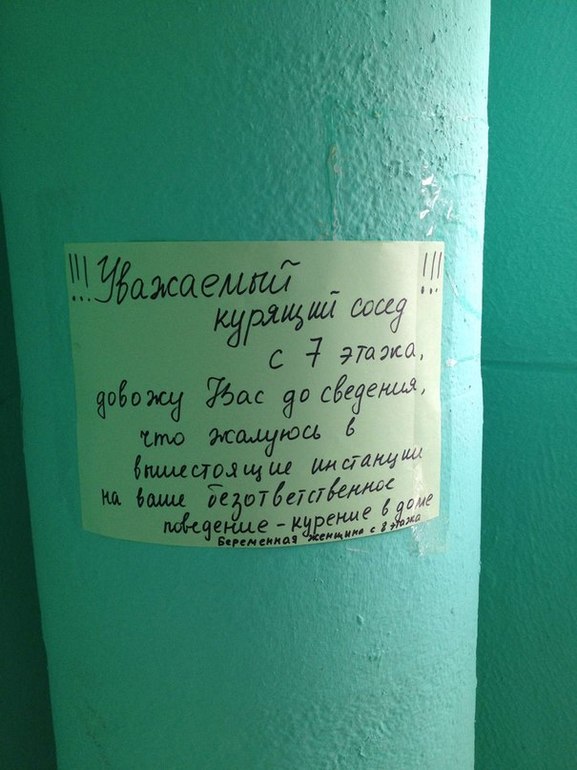 !!! Уважаемый !!!
курящий сосед
с 7 этажа,
довожу Вас до сведения,
что жалуюсь в
вышестоящие инстанции
на ваше безответственное
поведение - курение в доме
Беременная женщина с 8 этажа